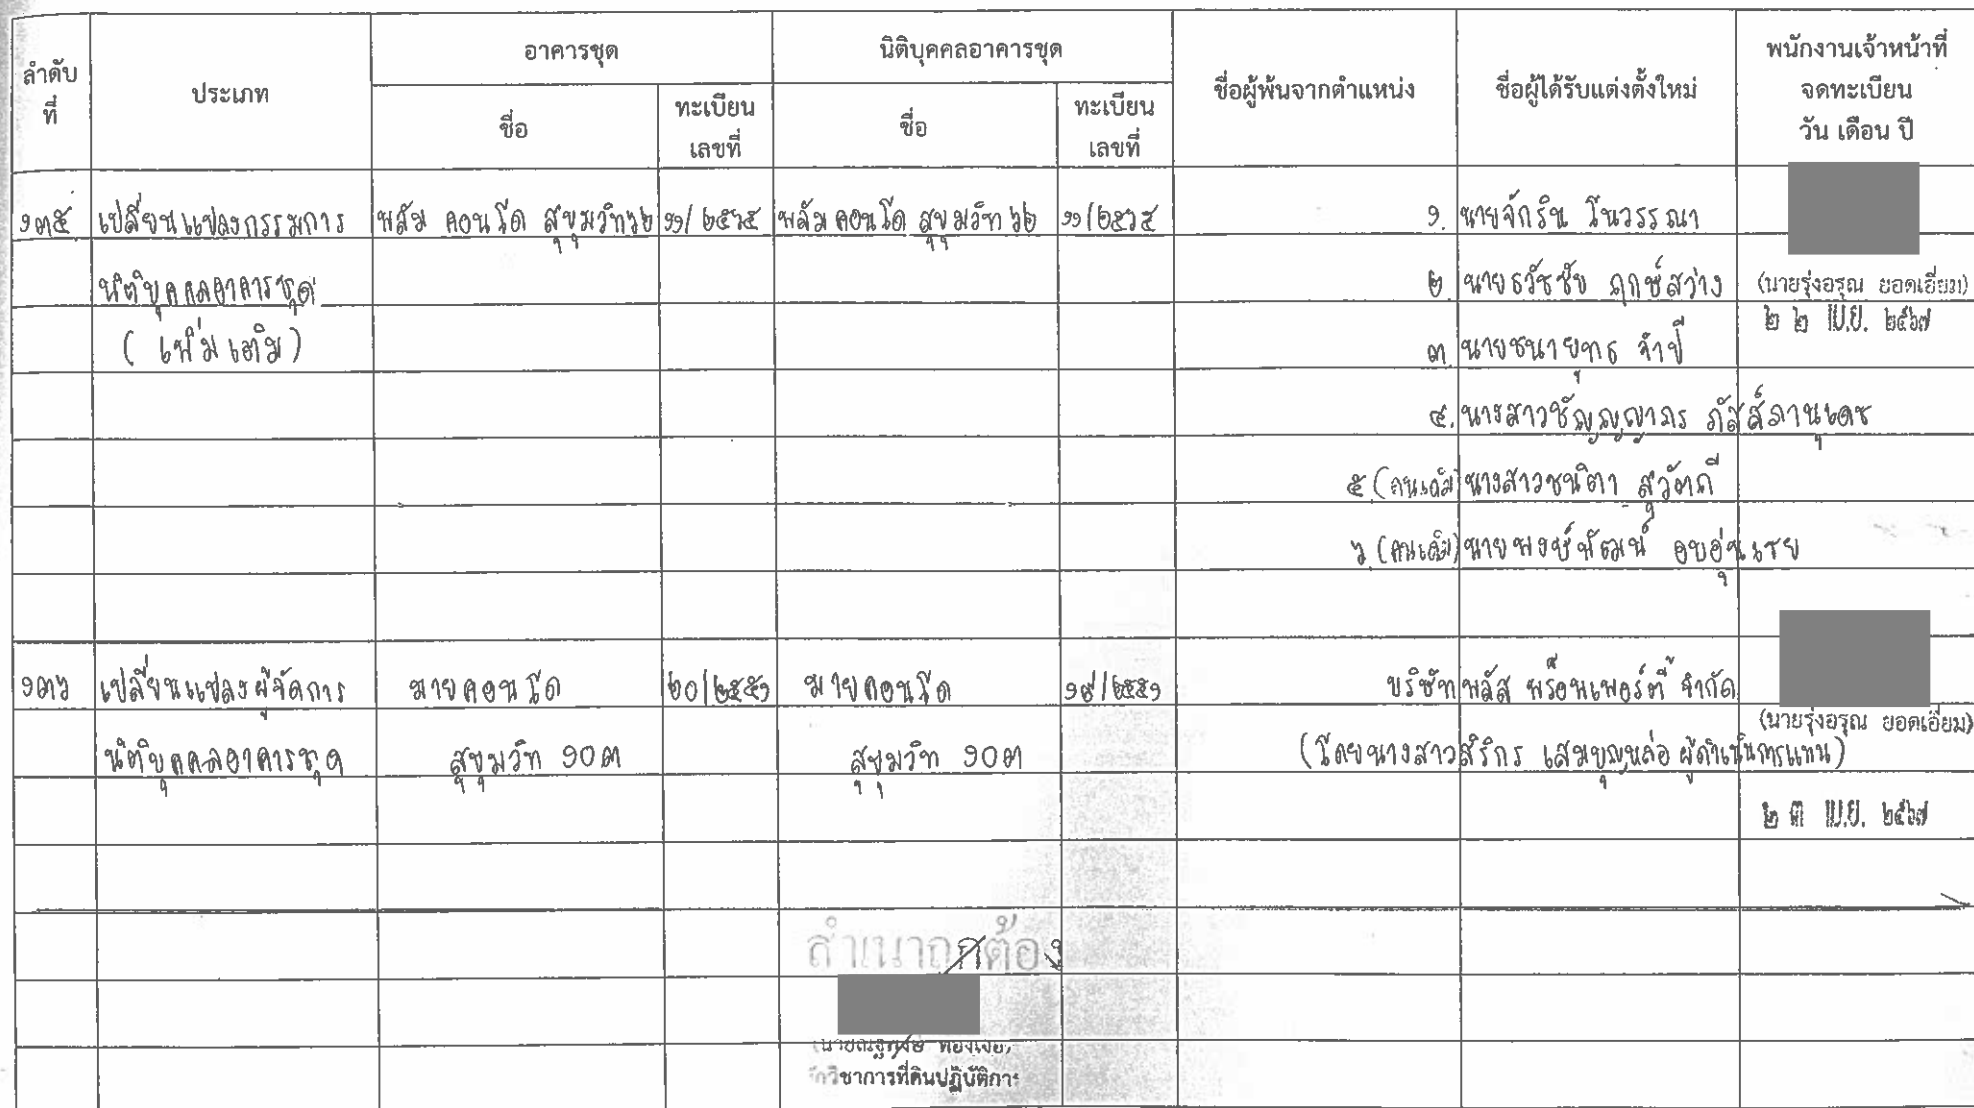 ลำดับ
ที่
ประเภท
อาคารชุด
นิติบุคคลอาคารชุด
ชื่อ
ทะเบียน
เลขที่
ชื่อ
ทะเบียน
เลขที่
ชื่อผู้พ้นจากตำแหน่ง
ชื่อผู้ได้รับแต่งตั้งใหม่
พนักงานเจ้าหน้าที่
จดทะเบียน
วัน เดือน ปี
๑๓๕ เปลี่ยนแปลงกรรมการ พลัม คอนโด สุขุมวิท๖๒ ๑๑/๒๕๖๕ พลัม คอนโด สุขุมวิท ๖๒ ๑๑/๒๕๖๕ ๑. นายจักริน โนวรรณา
นิติบุคคลอาคารชุด ๒. นายธวัชชัย ฤกษ์สว่าง (นายรุ่งอรุณ ยอดเอี่ยม)
๒ ๒ เม.ย. ๒๕๖๗
(เพิ่มเติม) ๓. นายชนายุทธ จำปี
๔. นางสาวชัญญญาภร ภัสส์ภานุเดช
๕ (คนเดิม) นางสาวชนิตา สุวัตถี
๖. (คนเดิม) นายพงษ์พัฒน์ อบอุ่นเชย
๑๓๖ เปลี่ยนแปลงผู้จัดการ มายคอนโด ๒๐/๒๕๕๑ มายคอนโด ๑๙/๒๕๕๑ บริษัท พลัส พร็อพเพอร์ตี้ จำกัด
(นายรุ่งอรุณ ยอดเอี่ยม)
นิติบุคคลอาคารชุด สุขุมวิท ๑๐๓ สุขุมวิท ๑๐๓ (โดยนางสาวสิริกร เสมบุญหล่อ ผู้ดำเนินการแทน)
๒ ๓ เม.ย. ๒๕๖๗
สำเนาถูกต้อง
วิชาการที่ดินปฏิบัติการ